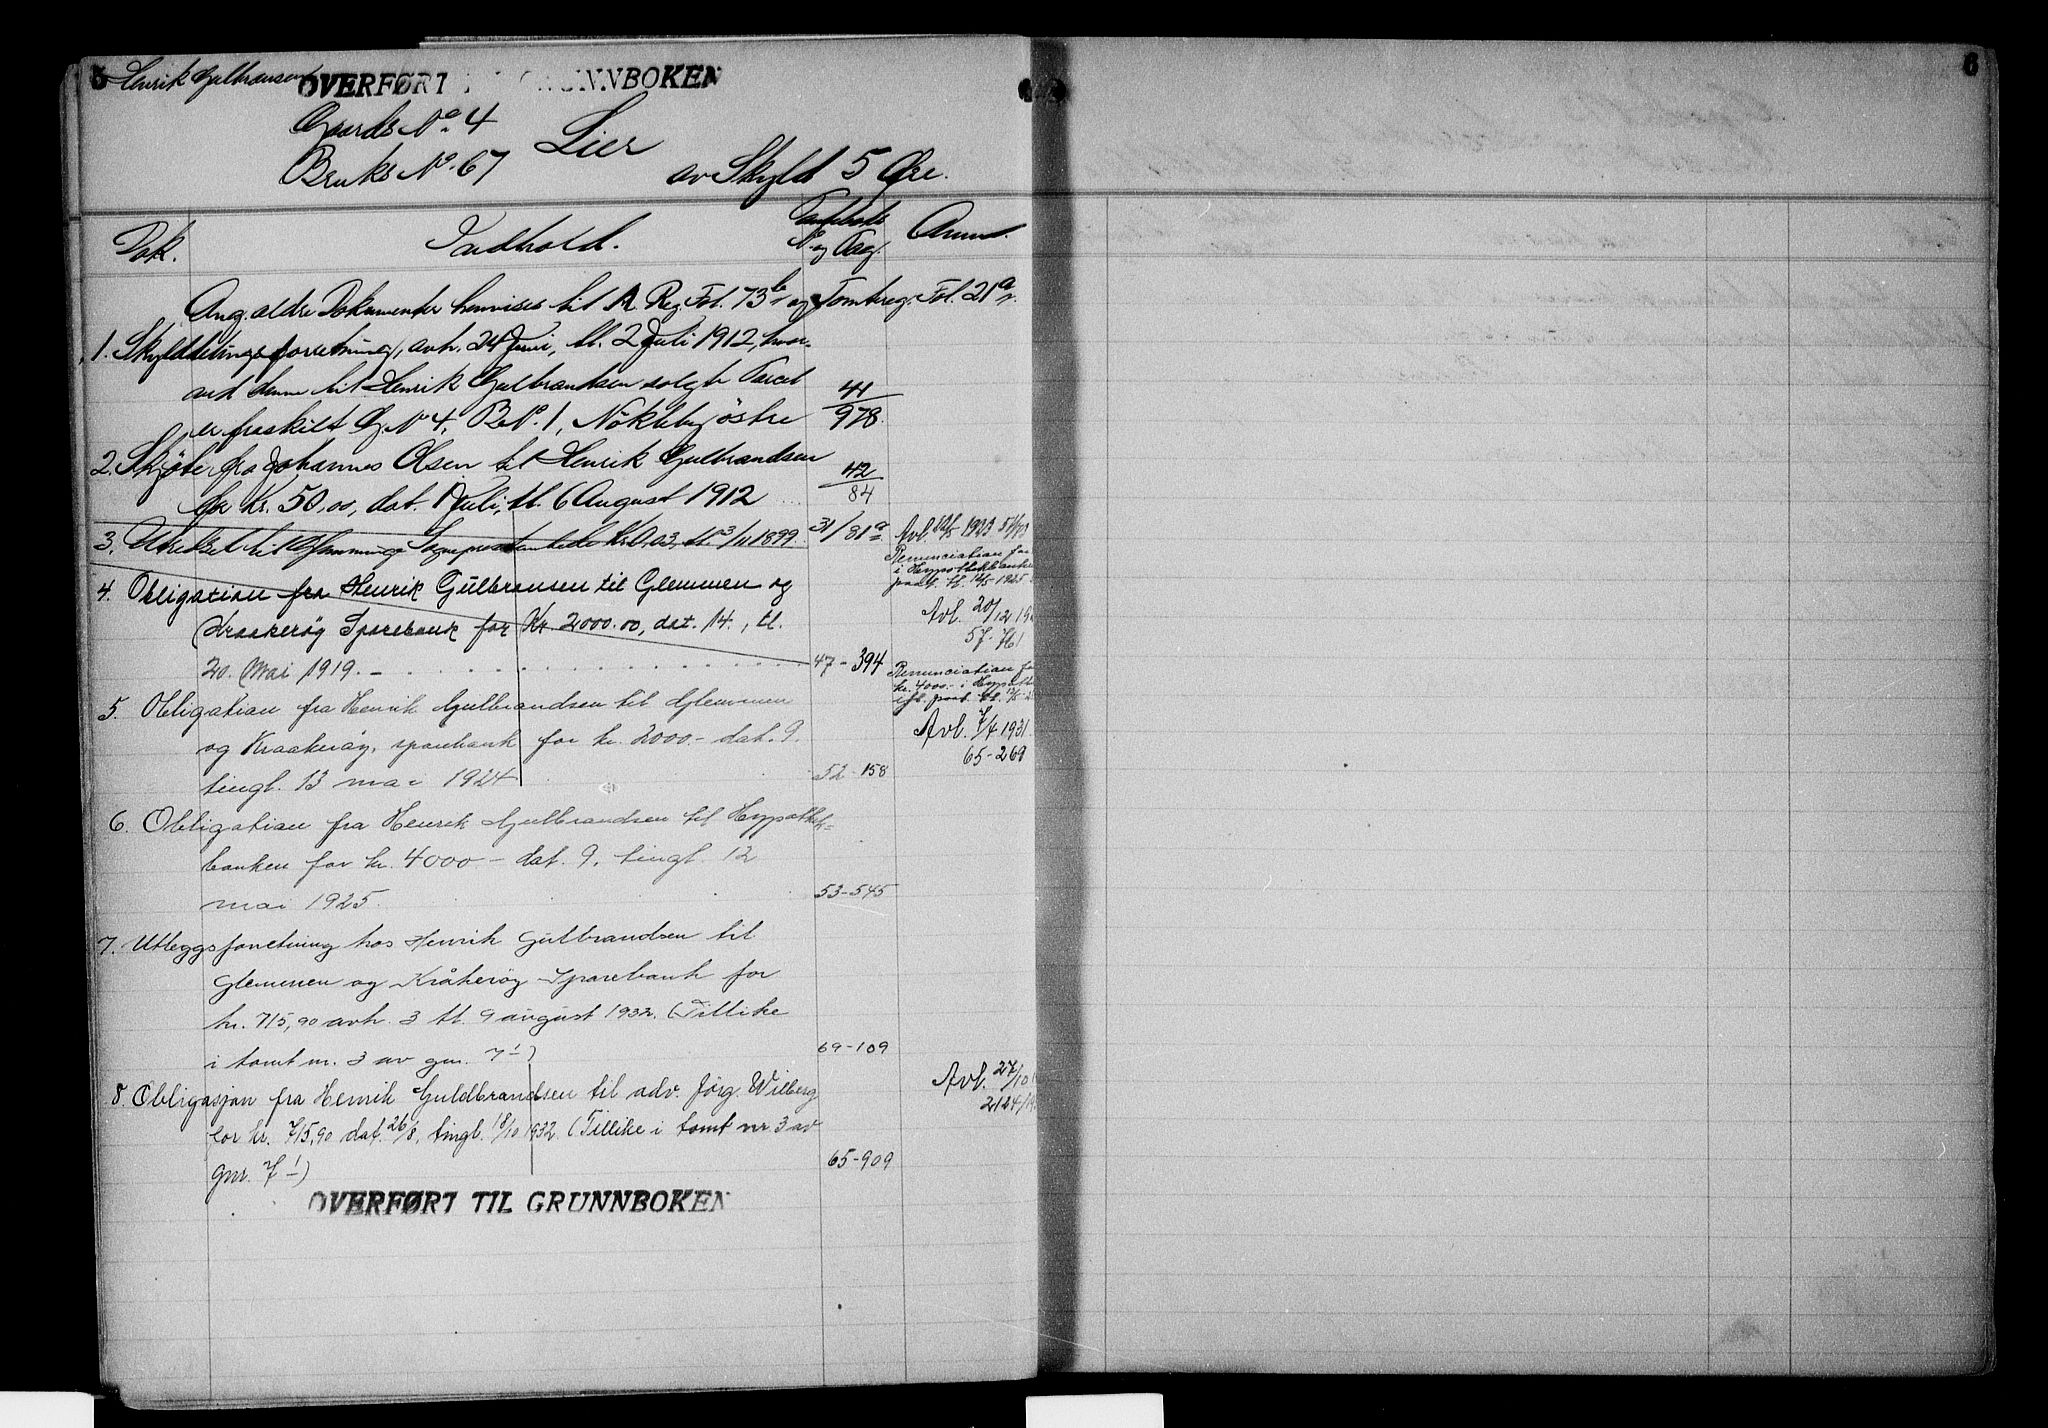 5 Henrik Gulbransen
OVERFØRT TIL GRUNNBOKEN
6
Gaards No. 4
Lier
Bruks No. 67
av Skyld 5 Øre.
Dok.
Indhold.
Pantebok No. og Pag.
Anm.
Ang. ældre Dokumenter henvises til A Reg. Fol. 73b og Tomtreg. Fol. 21a.
1. Skylddelingsforretning, avh. 24 Juni, tl. 2 Juli 1912, hvor-
ved denne til Henrik Gulbrandsen solgte Parcel
41
er fraskilt G. No 4, B. No. 1, Nøkleby østre
978.
2. Skjøte fra Johannes Olsen til Henrik Gulbrandsen
42
for Kr. 50,00, dat. 1 Juli, tl. 6 August 1912
84
3. til Glemminge Kr. 0,03, tl. 3/11 1899.
31/81a
Avl. 1923
4. Obligation fra Henrik Gulbransen til Glemmen og
Kraakerøy Sparebank for Kr. 2000.00, dat. 14., tl.
20. Mai 1919. –
47 – 394
Renunciation for
i Hypothekbanken
pant. tl. 12/5 – 1925
Avl. 20/12 19
57-761
5. Obligation fra Henrik Gulbrandsen til Glemmen
og Kraakerøy sparebank for kr. 2000.– dat. 9.
tingl. 13 mai 1924
52-158
Renunciation
kr. 4000.– i Hypoth
pant. tl. 12/5-25
Avl. 7/4 1931
65-269
6. Obligation fra Henrik Gulbrandsen til Hypothek-
banken for kr. 4000 – dat. 9. tingl. 12
mai 1925.
53-545
7. Utleggsforretning hos Henrik Gulbrandsen til
Glemmen og Kråkerøy Sparebank for
kr. 715,90 avh. 3 tl. 9 august 1932. (Tillike
i tomt nr. 3 av gnr. 7 1)
69-109
8. Obligasjon fra Henrik Guldbrandsen til adv. Jørg. Wilberg
for kr. 715,90 dat. 26/8, tingl. 18/10 1932. (Tillike i tomt nr 3 av
gnr. 7 1)
65-909
Avl. 27/10
2124/19
OVERFØRT TIL GRUNNBOKEN